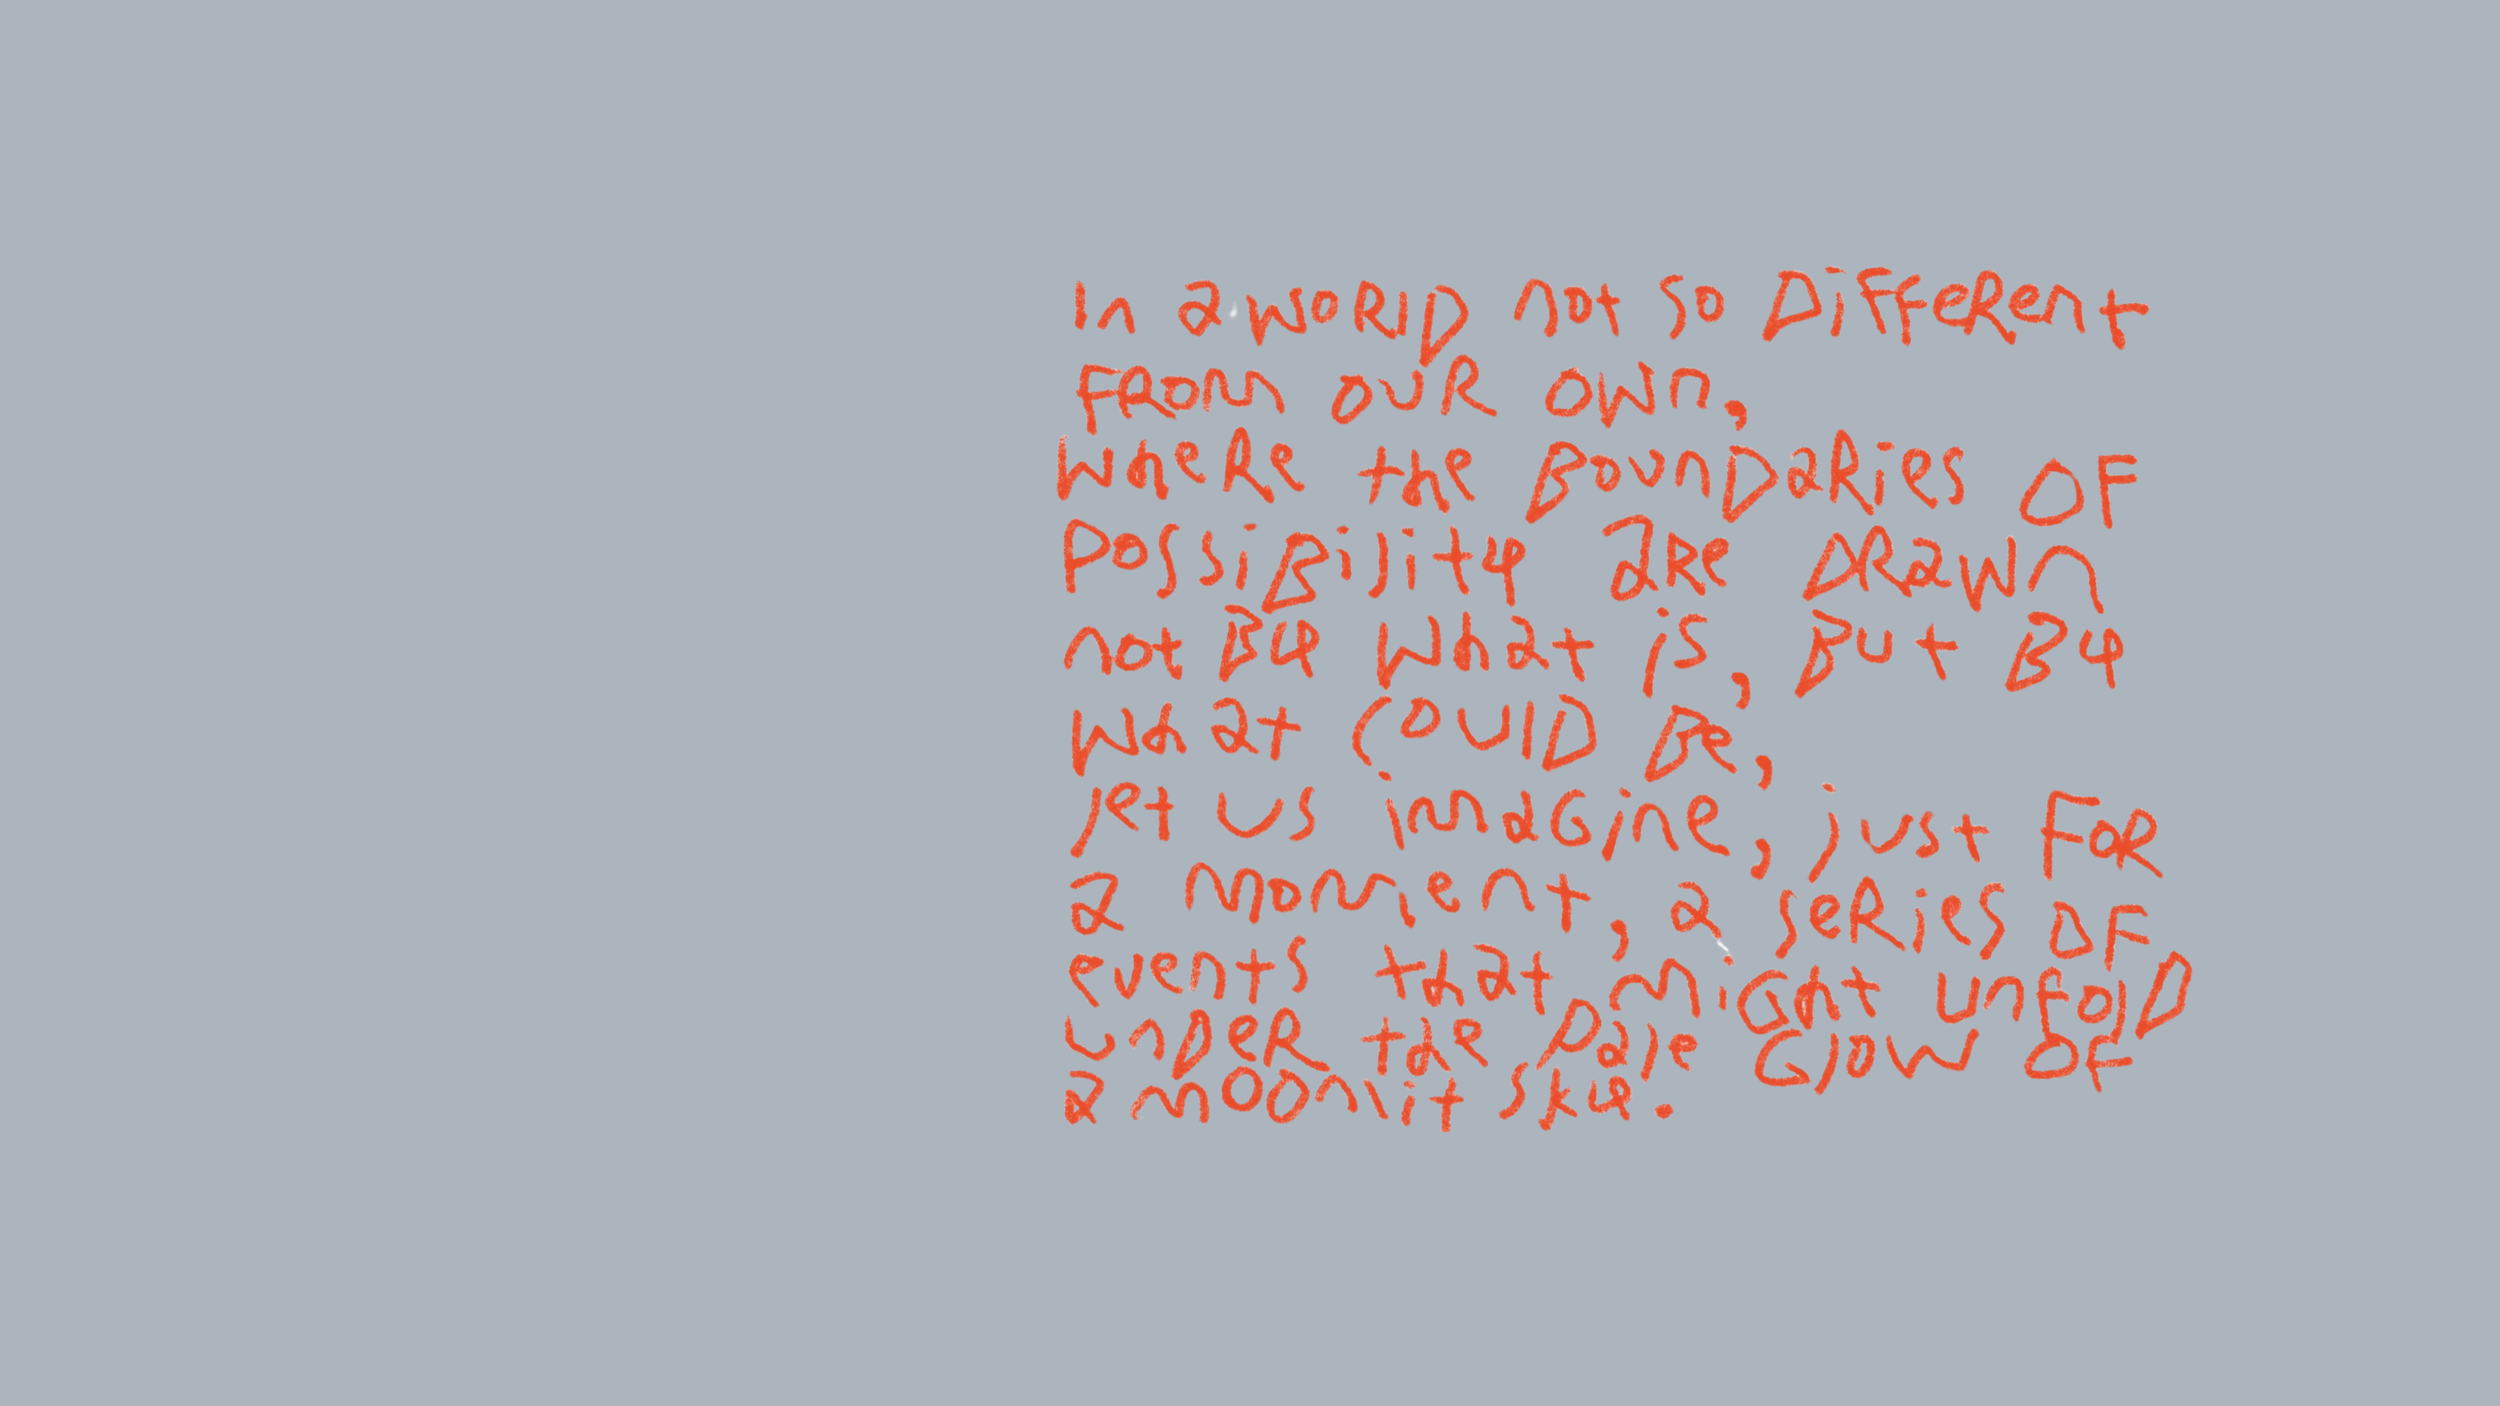 In a world not so different
from our own,
where the boundaries of
possibility are drawn
not by what is, but by
what could be,
let us imagine, just for
a moment, a series of
events that might unfold
under the pale glow of
a moonlit sky.